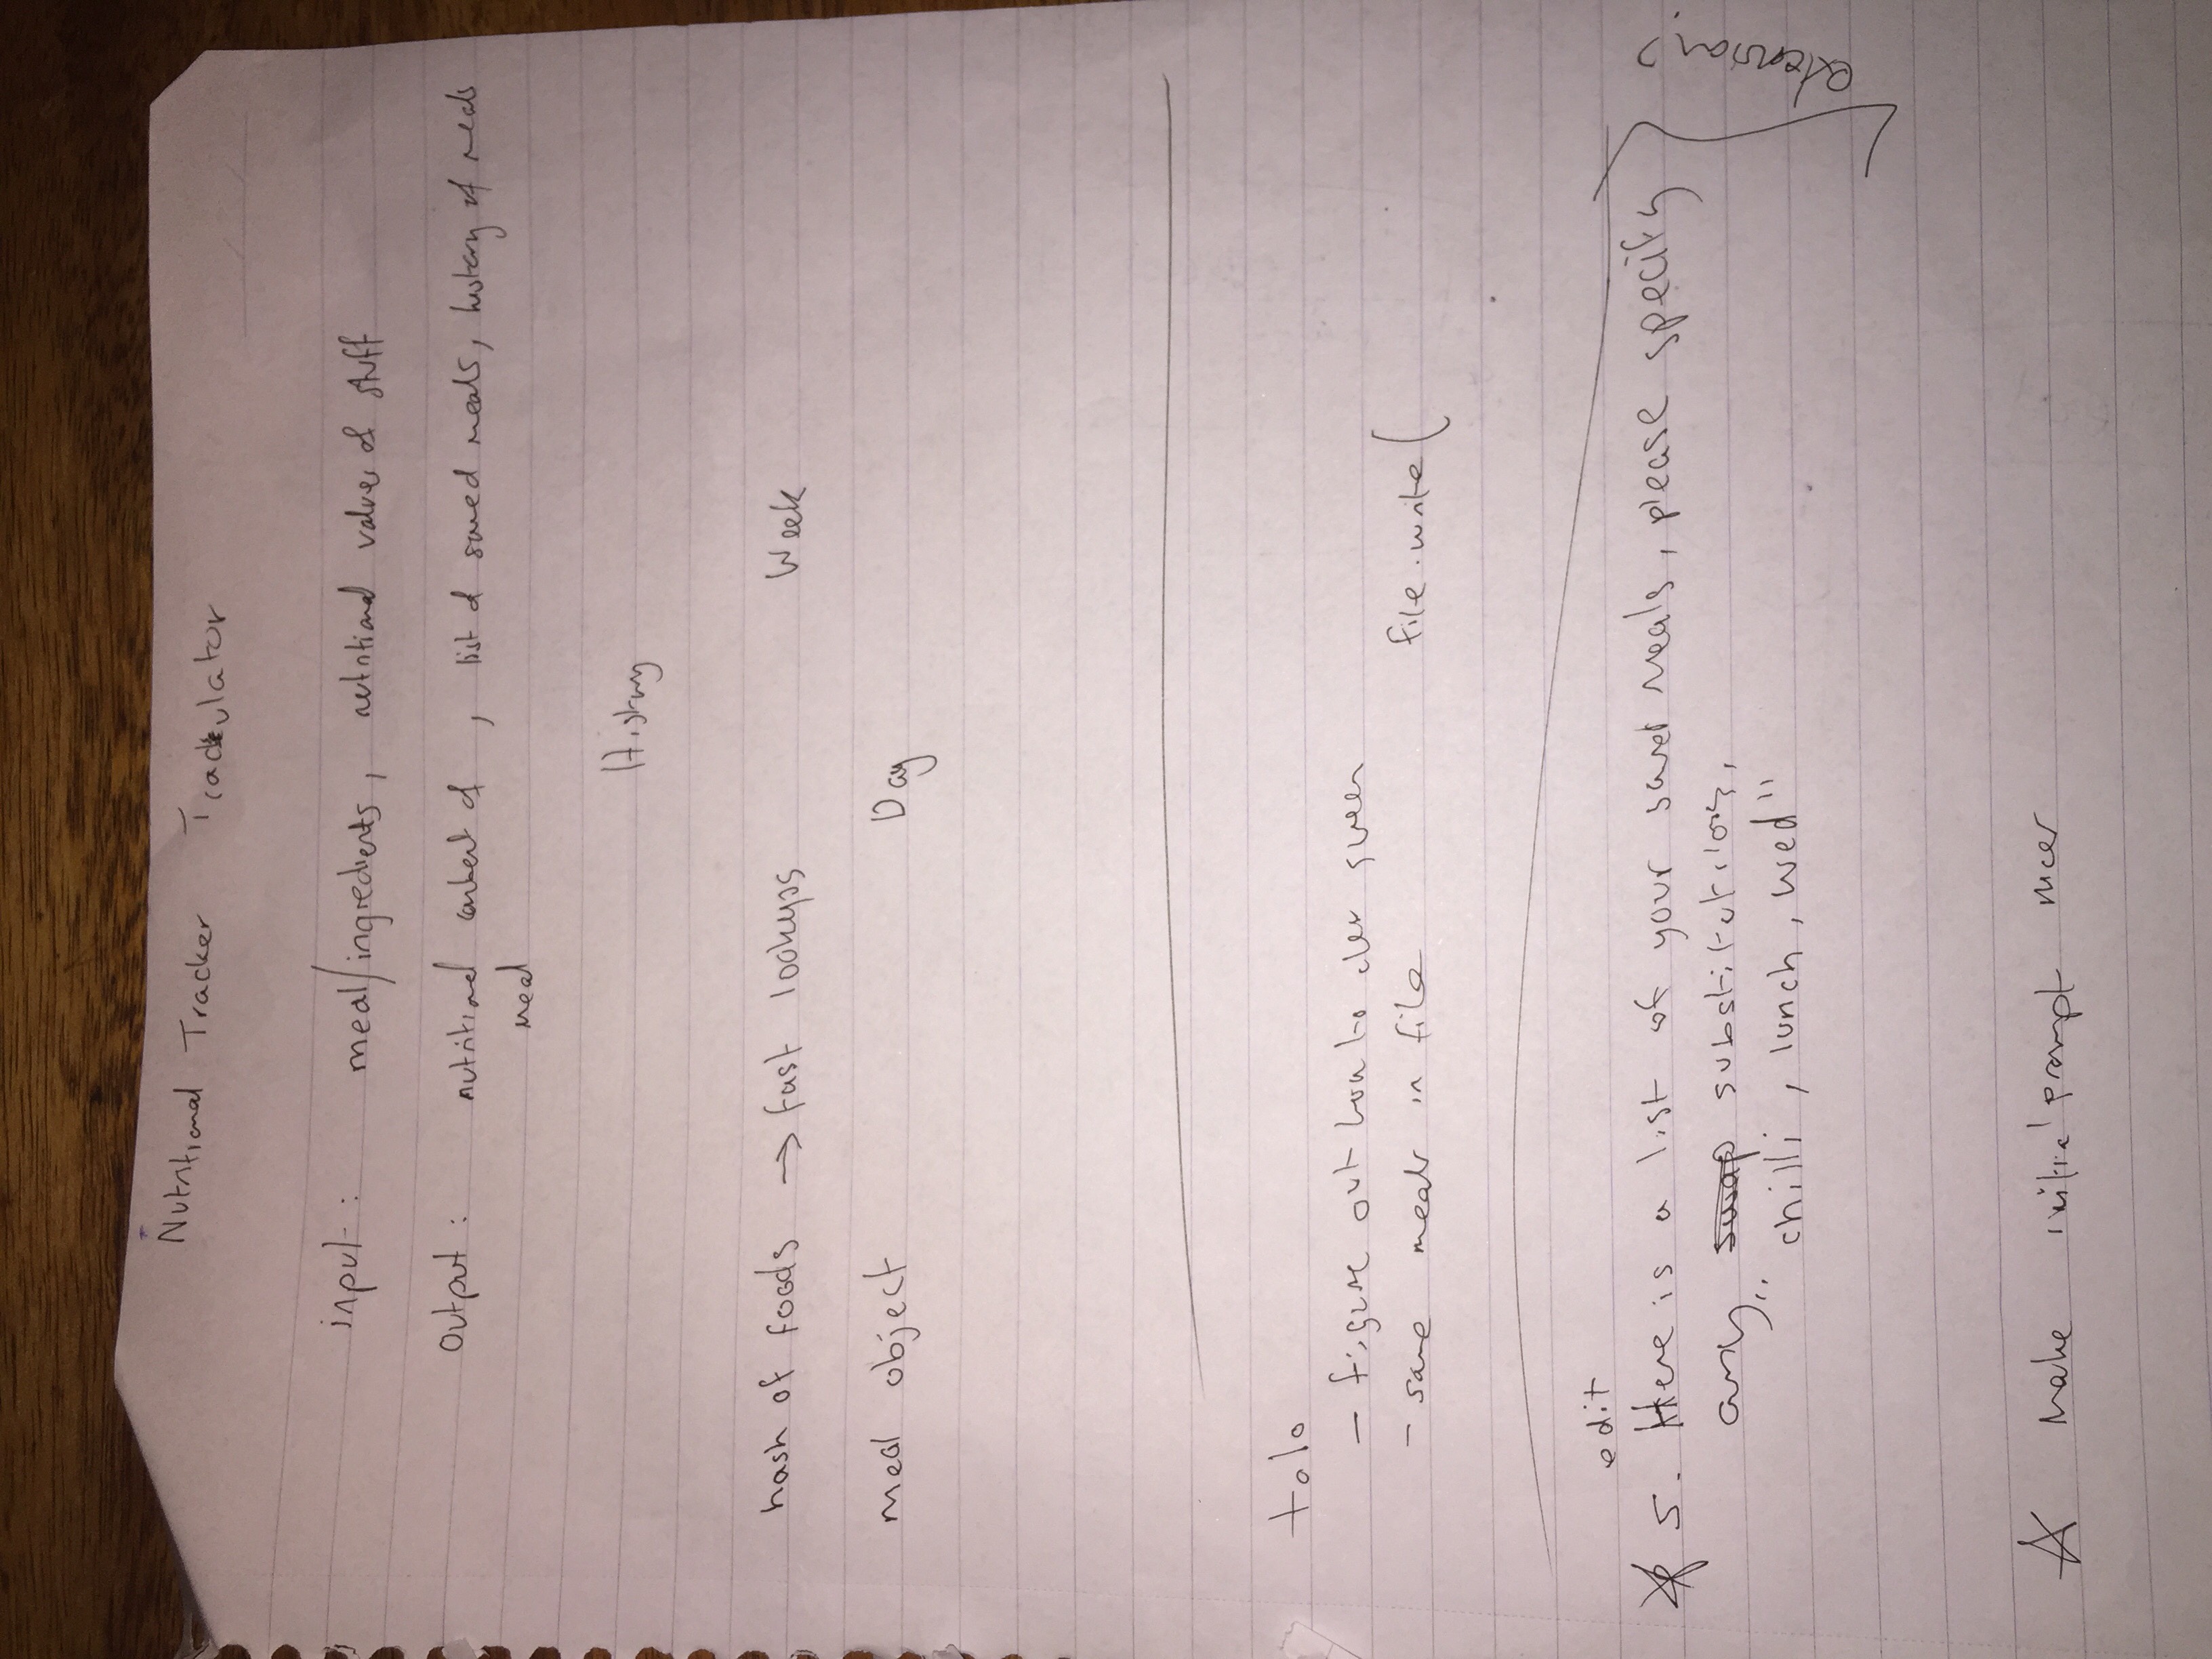 Nutritional Tracker Trackulator
input : meal/ingredients, nutritional values of stuff
Output : nutritional content of , list of saved meals, history of meals
meal
History
hash of foods → fast lookups Week
meal object Day
todo
- figure out how to clear screen
- save meals in file file.write(
edit
* 5. Here is a list of your saved meals, please specify
any swap substitutions,
"chilli, lunch, wed"
extension?
☆ Make initial prompt nicer